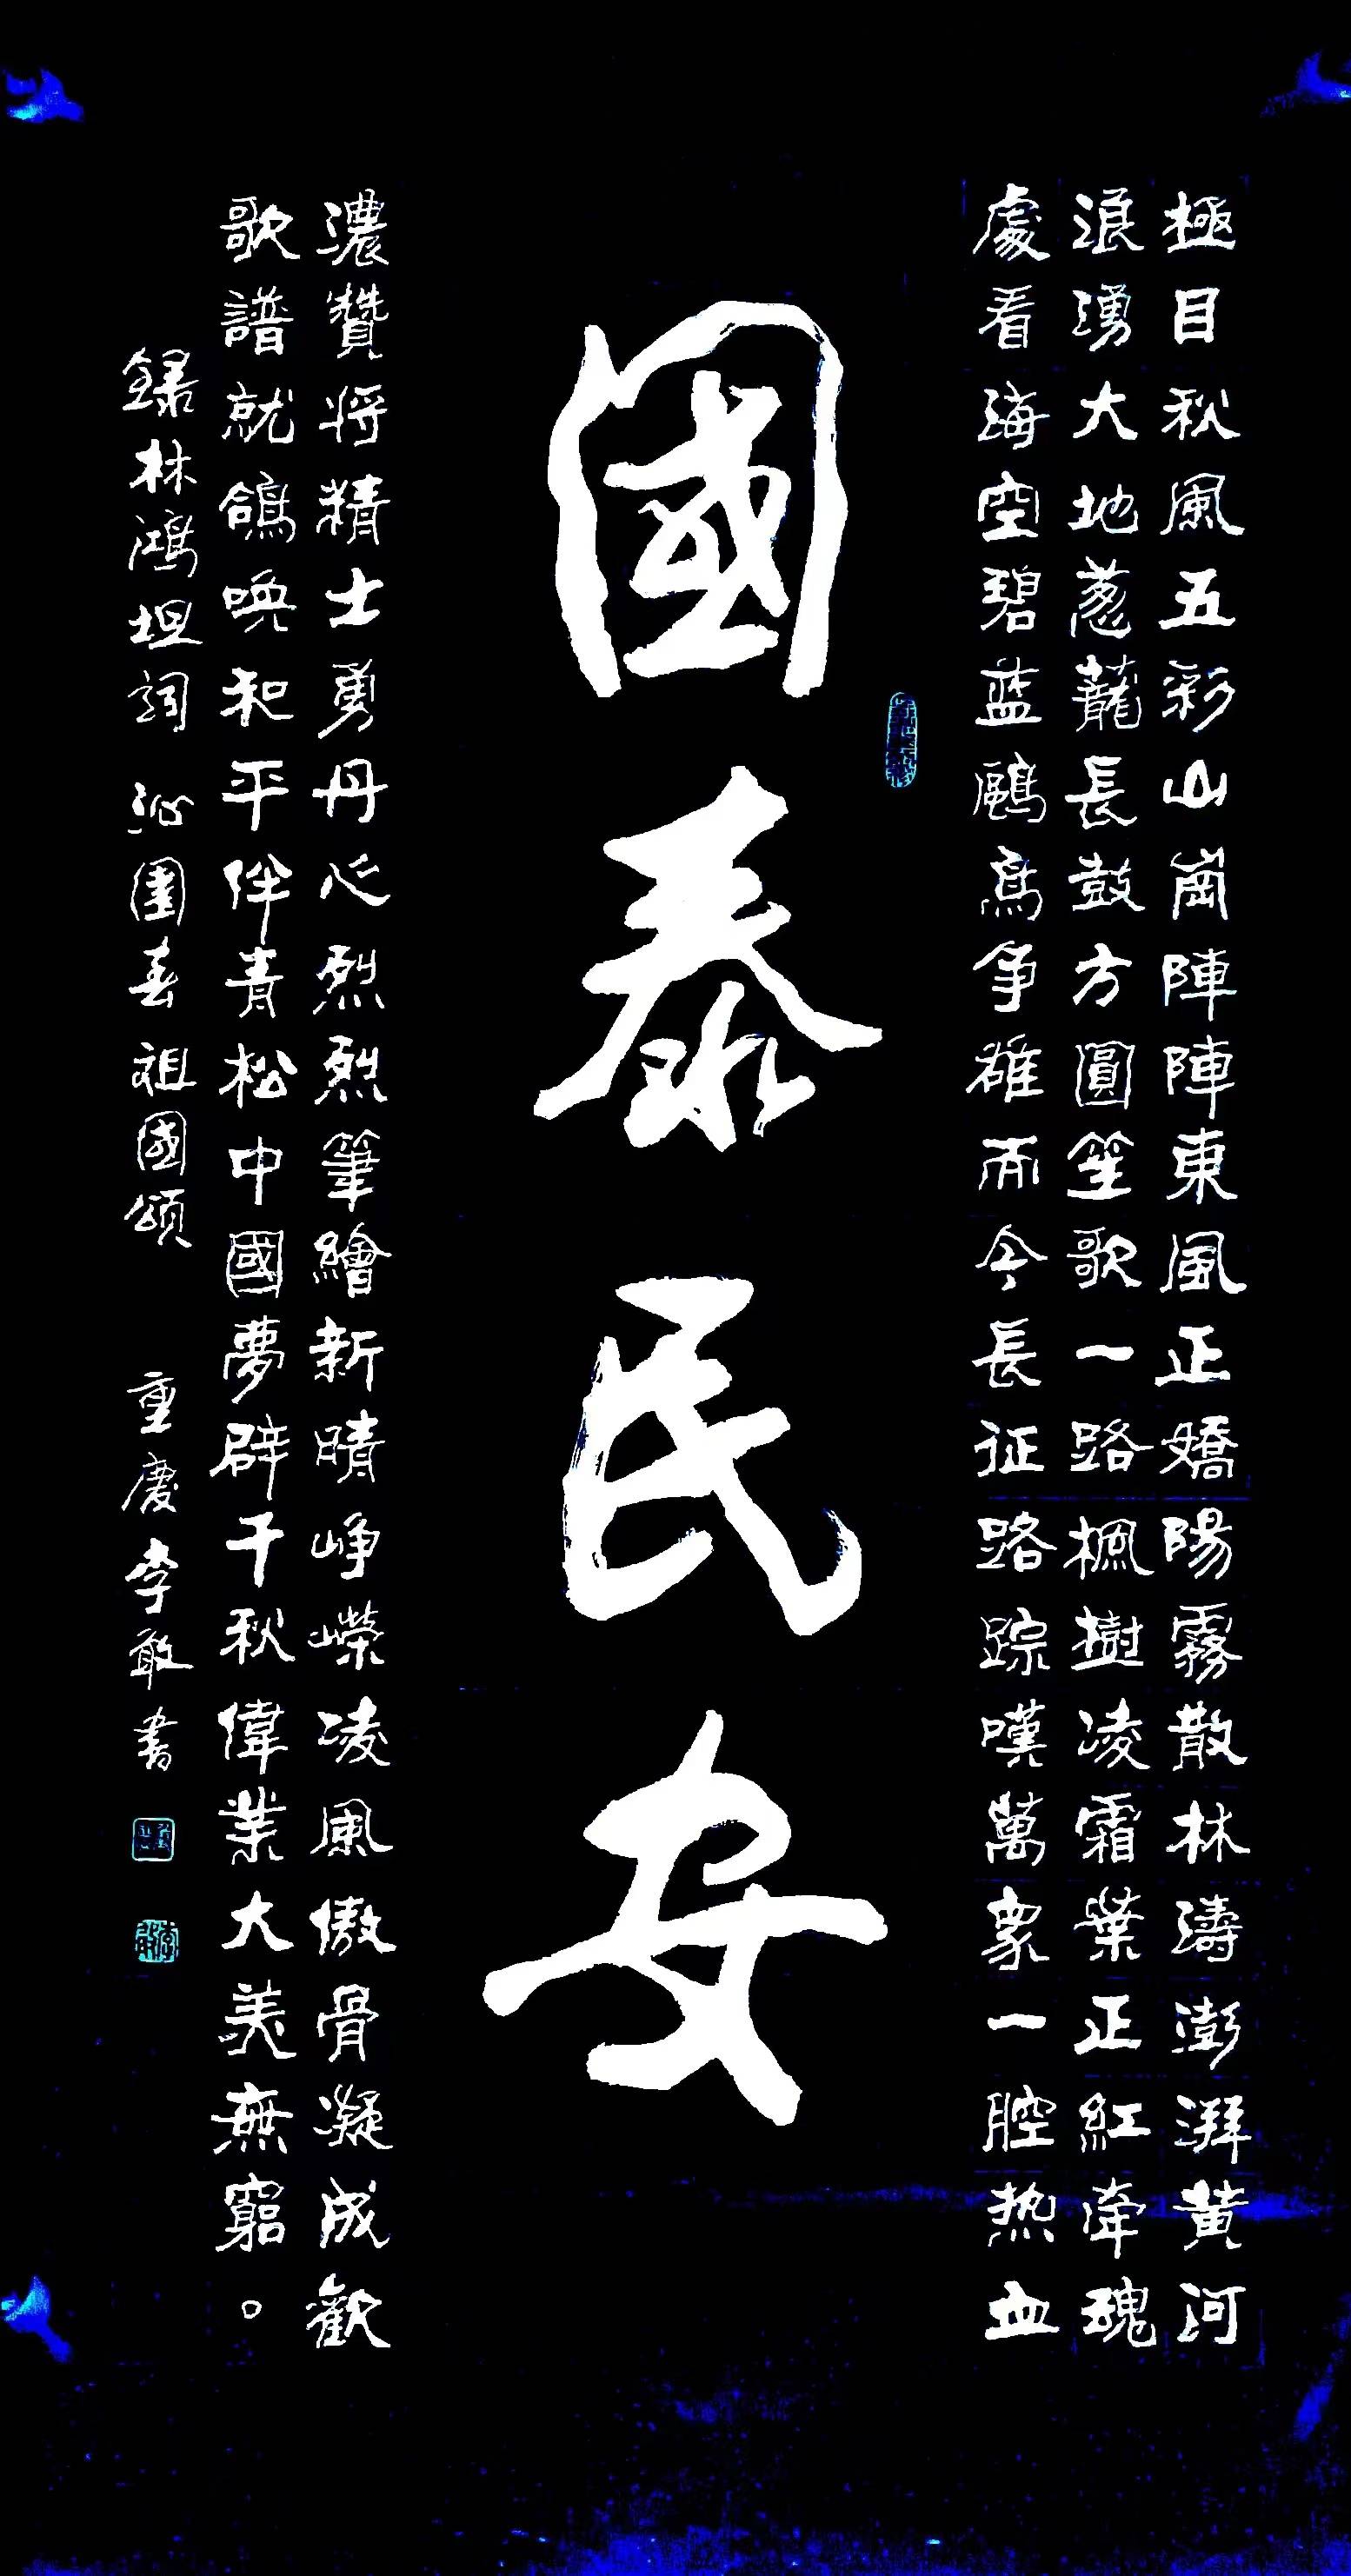 極目秋風五彩山崗陣陣東風正嬌陽霧散林濤澎湃黄河
浪湧大地蔥蘢長鼓方圓笙歌一路楓樹凌霜葉正紅牽魂
處看海空碧蓝鷗鳥争雄而今長征路踪嘆萬象一腔热血
國泰民安
濃贊将精士勇丹心烈烈筆繪新晴峥嶸凌風傲骨凝成歡
歌譜就鴿唤和平伴青松中國夢辟千秋偉業大美無窮。
録林鴻坦詞 沁園春 祖國頌 重慶李敢書